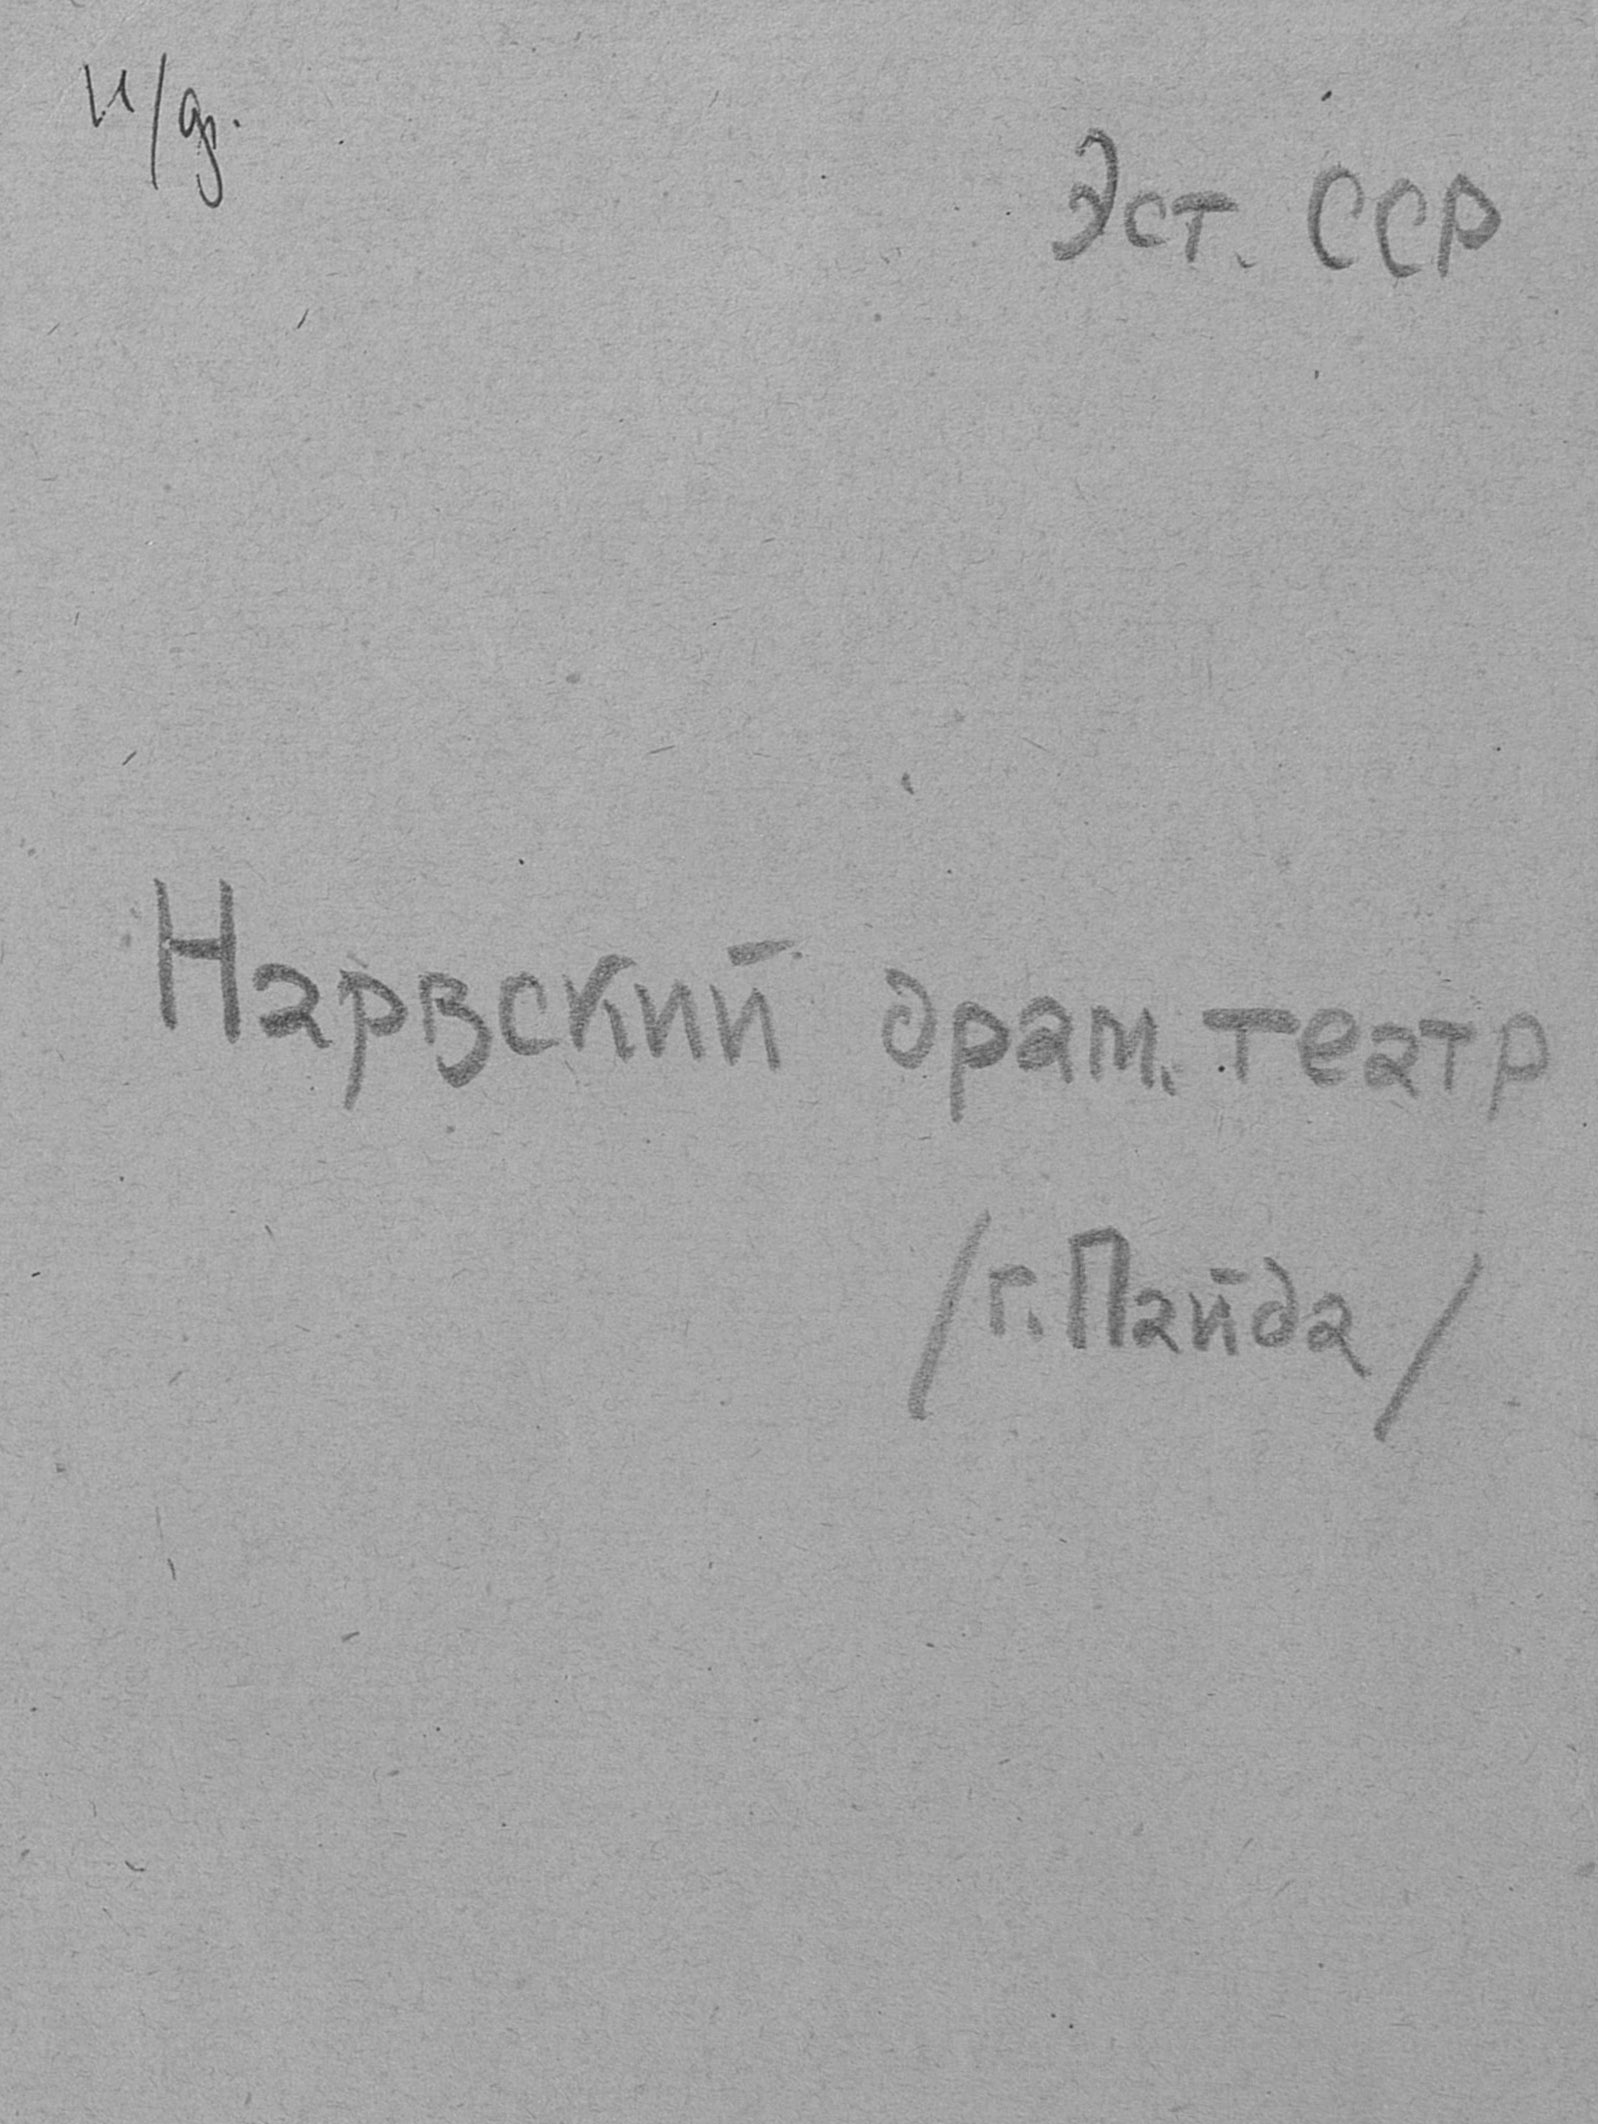 н/д.
Эст. ССР
Нарвский драм. театр
/г. Пайда/